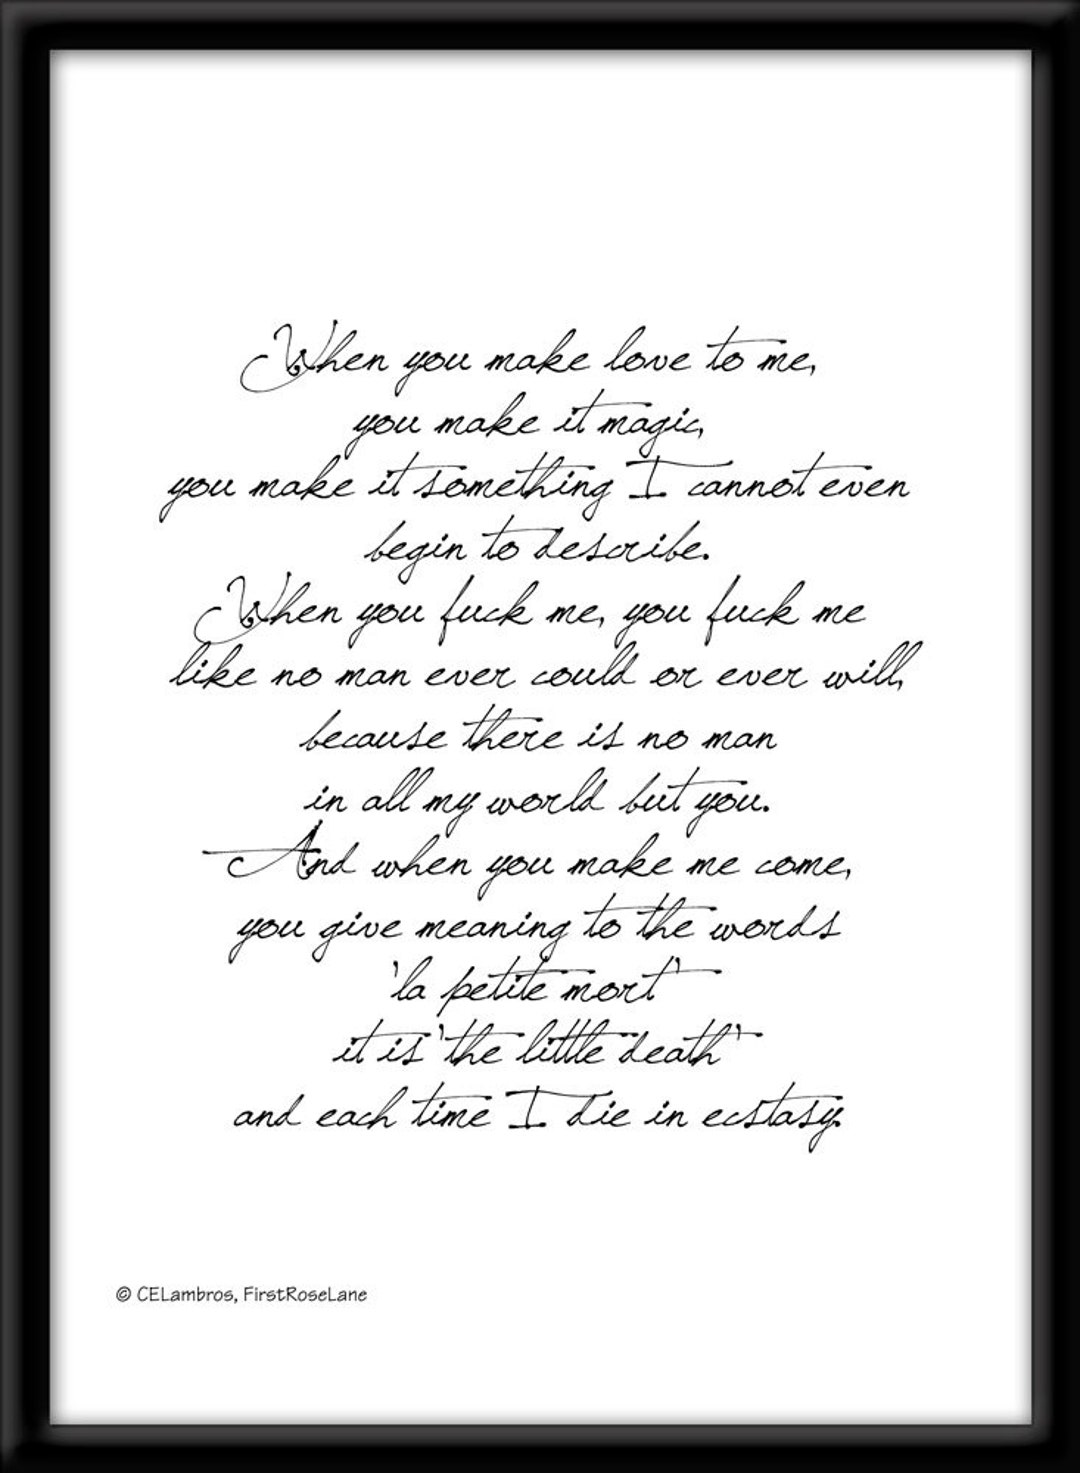 When you make love to me,
you make it magic,
you make it something I cannot even
begin to describe.
When you fuck me, you fuck me
like no man ever could or ever will,
because there is no man
in all my world but you.
And when you make me come,
you give meaning to the words
'la petite mort'
it is 'the little death'
and each time I die in ecstasy.
© CELambros, FirstRoseLane